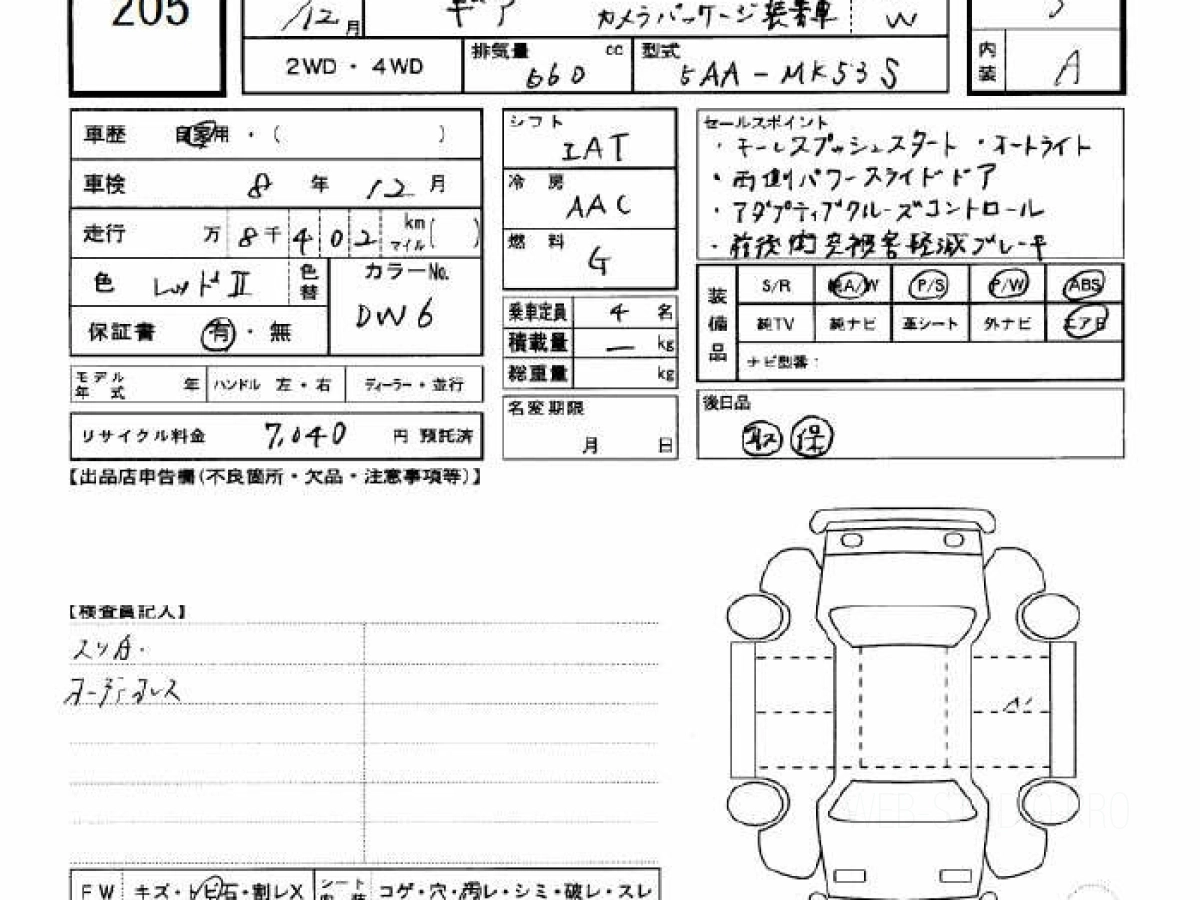 205
/12月 ギア カメラパッケージ装着車 W
2WD・4WD 排気量 660 cc 型式 5AA-MK53S 内装 A
車歴 自家用・( )
車検 8年 12月
走行 万 8千 402 km マイル( )
色 レッドII 色替 カラーNo. DW6
保証書 有・無
モデル年式 年 ハンドル 左・右 ディーラー・並行
リサイクル料金 7,040 円 預託済
シフト IAT
冷房 AAC
燃料 G
乗車定員 4 名
積載量 ー kg
総重量 kg
名変期限 月 日
セールスポイント
・キーレスプッシュスタート ・オートライト
・両側パワースライドドア
・アダプティブクルーズコントロール
・前後衝突被害軽減ブレーキ
装備品 S/R 純A/W P/S P/W ABS
純TV 純ナビ 革シート 外ナビ エアB
ナビ型番:
後日品
取 保
【出品店申告欄(不良箇所・欠品・注意事項等)】
【検査員記入】
スリ有.
オーディオレス
A1
FW キズ・トビ石・割レX シート内装 コゲ・穴・汚レ・シミ・破レ・スレ